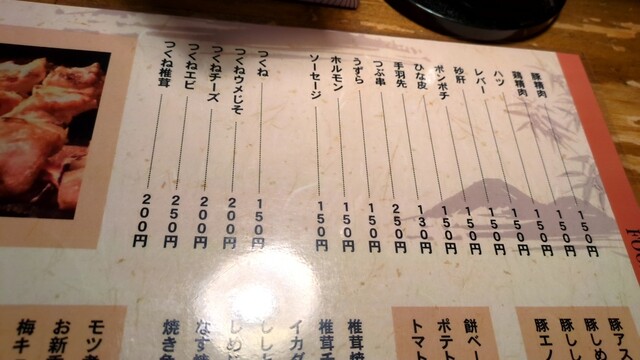 豚精肉 150円
鶏精肉 150円
ハツ 150円
レバー 150円
砂肝 150円
ボンボチ 150円
ひな皮 150円
手羽先 130円
つぶ串 250円
うずら 150円
ホルモン 150円
ソーセージ 150円
つくね 150円
つくねウメじそ 200円
つくねチーズ 200円
つくねエビ 250円
つくね椎茸 200円
豚ア
豚しめ
豚しし
豚エ
餅ベー
ポテト
トマト
椎茸焼
椎茸チ
イカダ
ししと
しめじ
なす焼
焼き
モツ
お新
梅キ